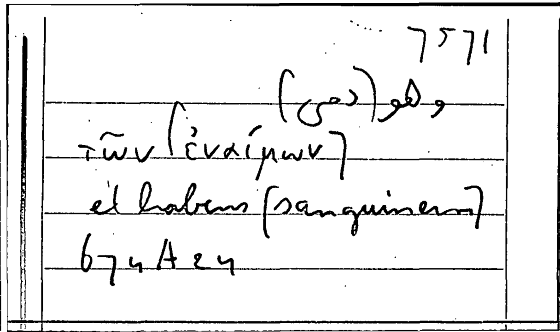 7571
وهو (دمي)
τῶν [ἐναίμων]
et habens [sanguinem]
674 A 24